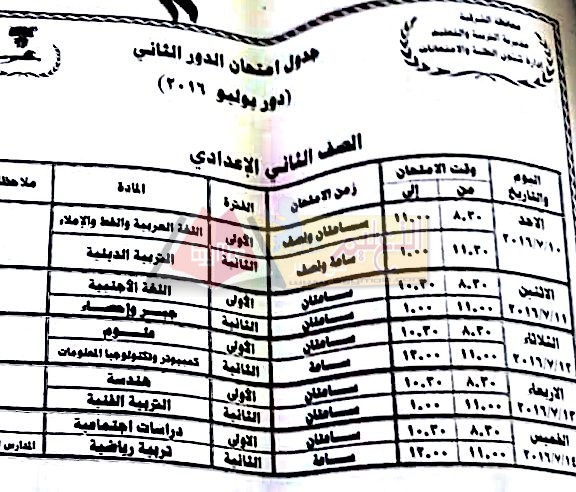 محافظة الشرقية
مديرية التربية والتعليم
إدارة شئون الطلبة والامتحانات
جدول امتحان الدور الثاني
(دور يوليو ٢٠١٦)
الصف الثاني الإعدادي
اليوم والتاريخ وقت الامتحان زمن الامتحان الفترة المادة
من إلى
الاحد ٨.٣٠ ١١.٠٠ ساعتان ونصف الأولى اللغة العربية والخط والإملاء
٢٠١٦/٧/١٠ ١١.٣٠ ١.٠٠ ساعة ونصف الثانية التربية الدينية
الاثنين ٨.٣٠ ١٠.٣٠ ساعتان الأولى اللغة الأجنبية
٢٠١٦/٧/١١ ١١.٠٠ ١.٠٠ ساعتان الثانية جبر وإحصاء
الثلاثاء ٨.٣٠ ١٠.٣٠ ساعتان الأولى علوم
٢٠١٦/٧/١٢ ١١.٠٠ ١٢.٠٠ ساعة الثانية كمبيوتر وتكنولوجيا المعلومات
الاربعاء ٨.٣٠ ١٠.٣٠ ساعتان الأولى هندسة
٢٠١٦/٧/١٣ ١١.٠٠ ١.٠٠ ساعتان الثانية التربية الفنية
الخميس ٨.٣٠ ١٠.٣٠ ساعتان الأولى دراسات اجتماعية
٢٠١٦/٧/١٤ ١١.٠٠ ١٢.٠٠ ساعة الثانية تربية رياضية